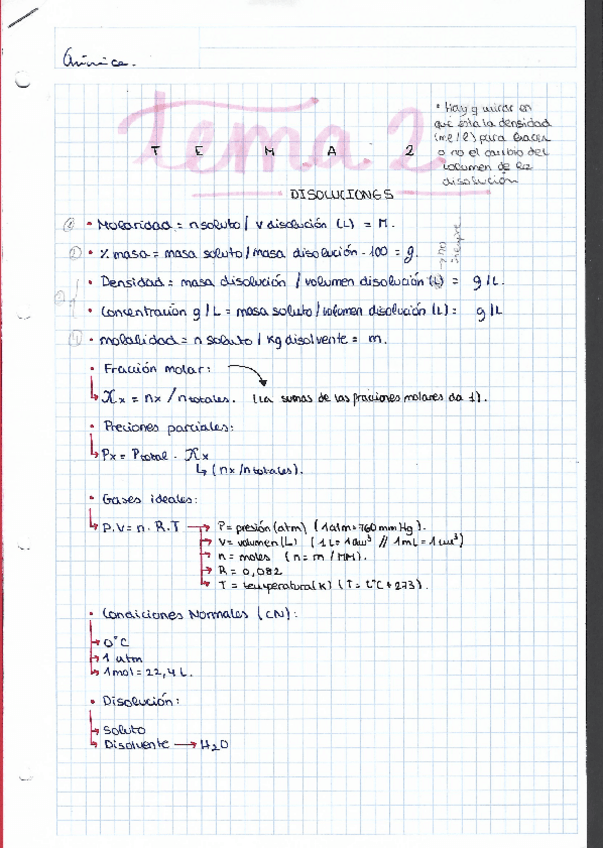 Química.
Tema 2
T E M A 2
• Hay q mirar en
qué esta la densidad
(me/e) para hacer
o no el cambio del
volumen de la
disolución
DISOLUCIONES
• Molaridad = nsoluto / v disolución (L) = M.
• % masa = masa soluto / masa disolución · 100 = g.
→ no siempre
• Densidad = masa disolución / volumen disolución (L) = g/L.
• Concentración g/L = masa soluto / volumen disolución (L) = g/L
• molalidad = n soluto / Kg disolvente = m.
• Fracción molar:
Xx = nx / ntotales. (La sumas de las fraciones molares da 1).
• Preciones parciales:
Px = Ptotal · Xx
(nx/ntotales).
• Gases ideales:
P.V = n. R.T → P = presión (atm) (1 atm = 760 mm Hg).
V = volumen (L) (1L = 1dm³ // 1mL = 1cm³)
n = moles (n = m / MM).
R = 0,082
T = temperatura (K) (T = t°C + 273).
• Condiciones Normales (CN):
0°C
1 atm
1 mol = 22,4 L.
• Disolución:
Soluto
Disolvente → H2O